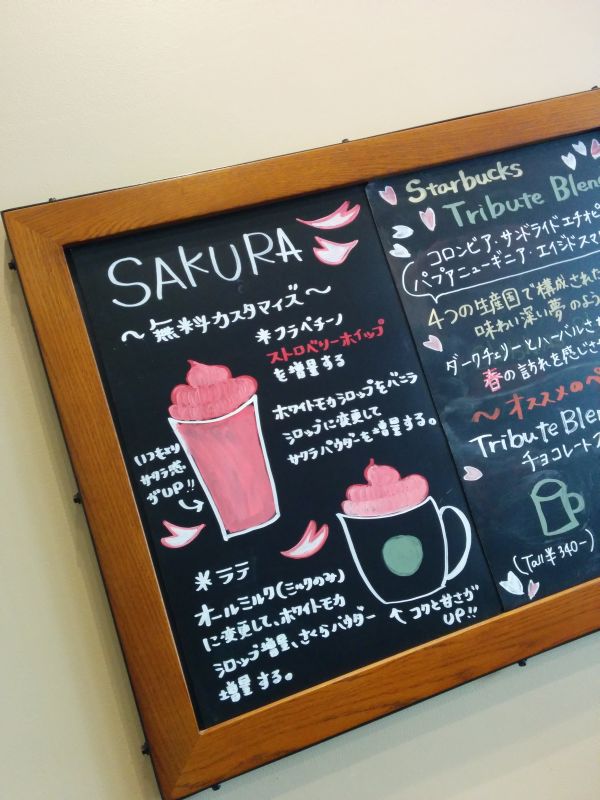 SAKURA
～無料カスタマイズ～
＊フラペチーノ
ストロベリーホイップ
を増量する
ホワイトモカシロップをバニラ
シロップに変更して
サクラパウダーを増量する。
いつもより
サクラ感
がUP!!
＊ラテ
オールミルク(ミルクのみ)
に変更して、ホワイトモカ
シロップ増量、さくらパウダー
増量する。
コクと甘さが
UP!!
Starbucks
Tribute Blen
コロンビア・サンドライドエチオピ
パプアニューギニア・エイジドスマ
4つの生産国で構成された
味わい深い夢のよう
ダークチェリーとハーバルさ
春の訪れを感じさ
～オススメのペ
Tribute Blen
チョコレート
(Tall¥340-)